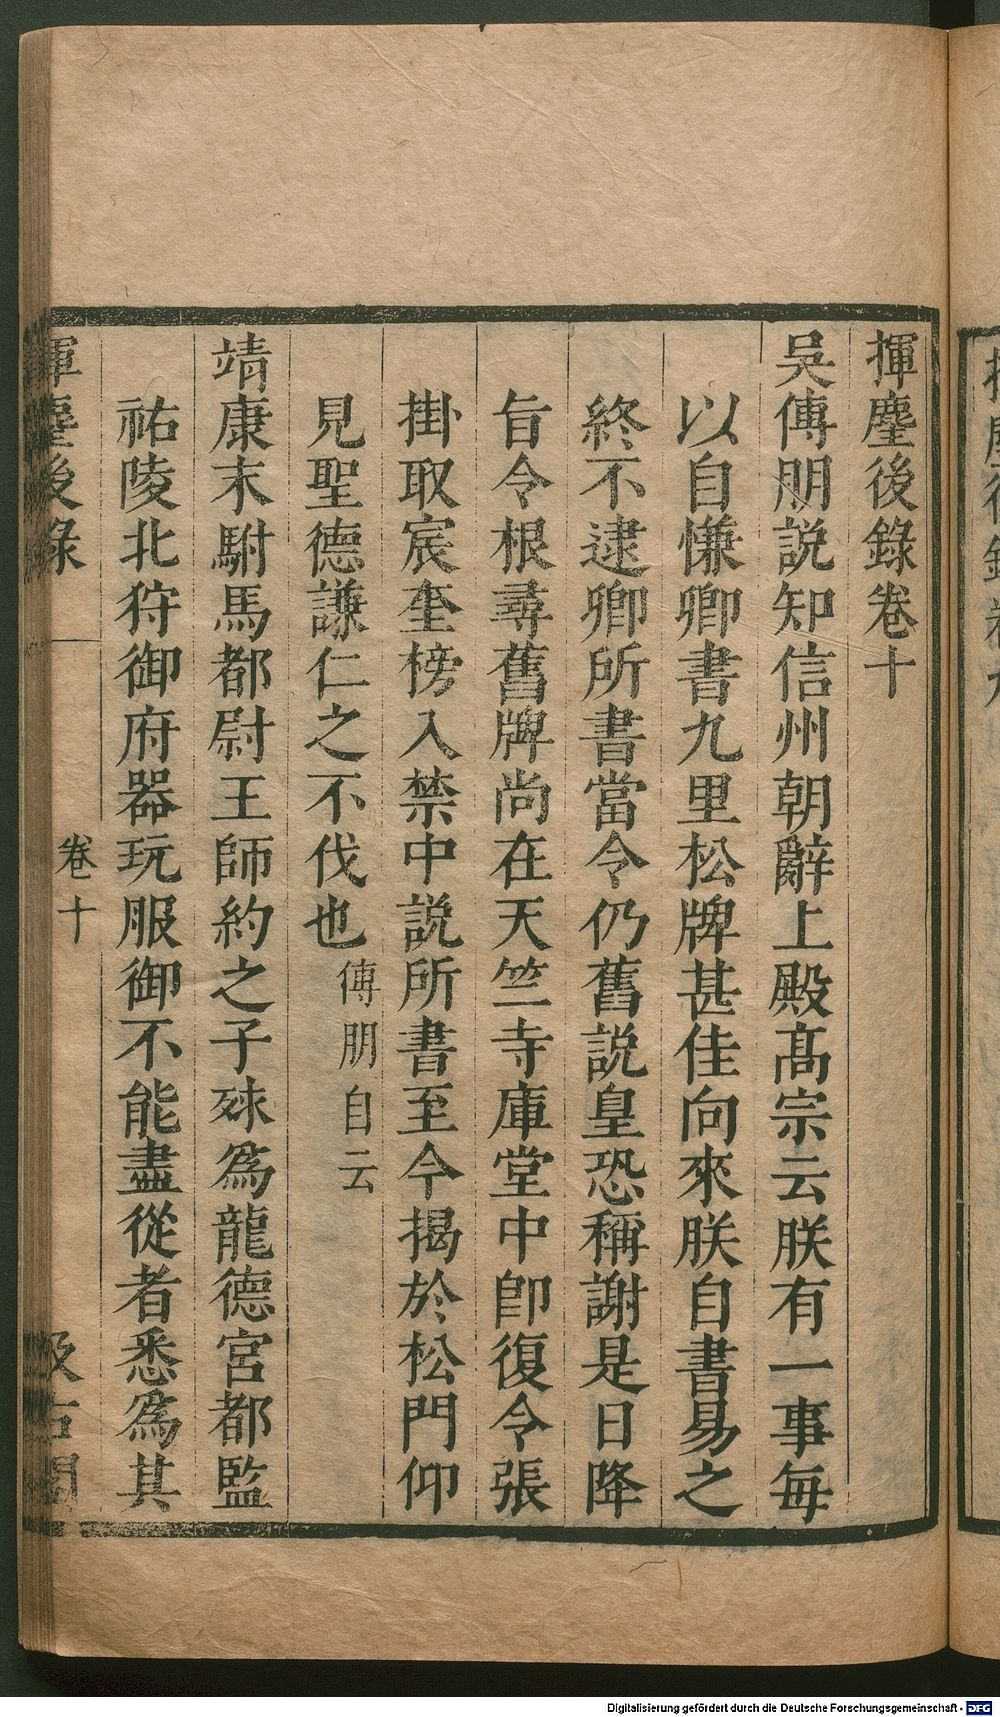 揮麈後錄卷十
吳傅朋説知信州朝辭上殿髙宗云朕有一事每
以自慊卿書九里松牌甚佳向來朕自書易之
終不逮卿所書當令仍舊説皇恐稱謝是日降
旨令根尋舊牌尚在天竺寺庫堂中卽復令張
掛取宸奎榜入禁中説所書至今揭於松門仰
見聖德謙仁之不伐也傅朋自云
靖康末駙馬都尉王師約之子殊爲龍德宮都監
祐陵北狩御府器玩服御不能盡從者悉爲其
揮麈後錄
卷十
汲古閣
Digitalisierung gefördert durch die Deutsche Forschungsgemeinschaft - DFG